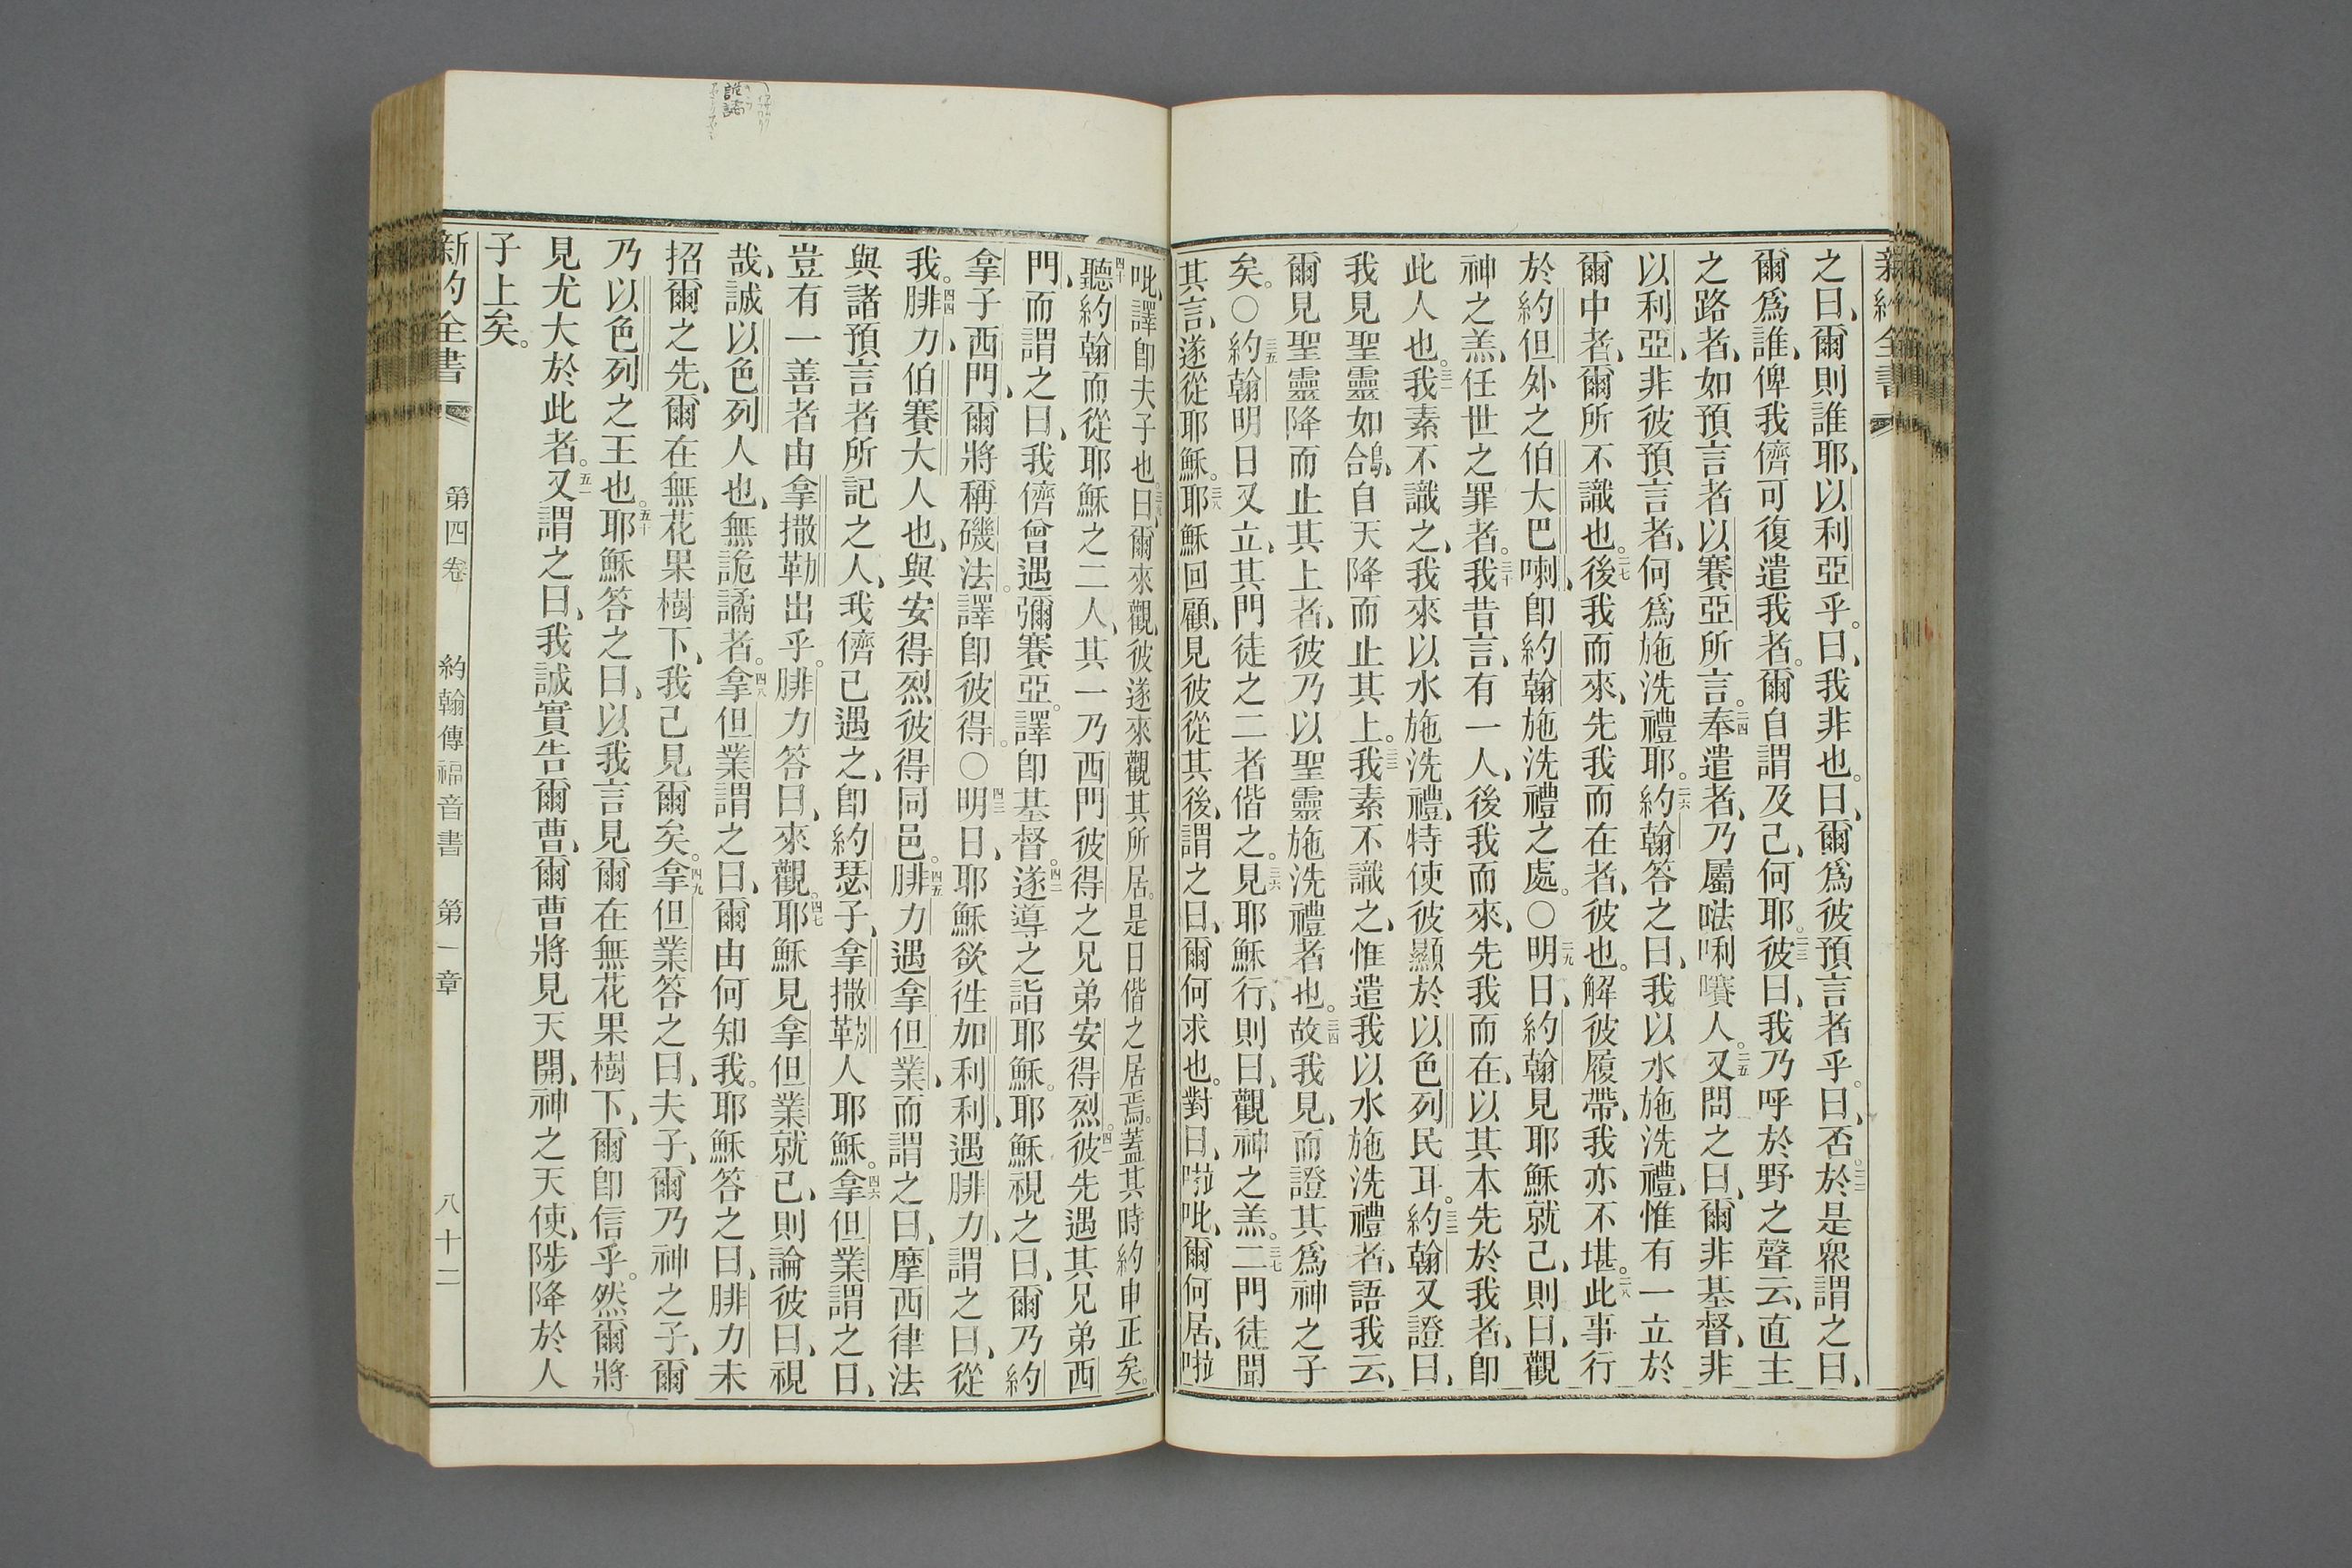 新約全書
之曰、爾則誰耶、以利亞乎。曰、我非也。曰、爾爲彼預言者乎。曰、否。二二於是衆謂之曰、
爾爲誰、俾我儕可復遣我者。爾自謂及己、何耶。二三彼曰、我乃呼於野之聲云、直主
之路者、如預言者以賽亞所言。二四奉遣者、乃屬㕰唎㘔人。二五又問之曰、爾非基督、非
以利亞、非彼預言者、何爲施洗禮耶。二六約翰答之曰、我以水施洗禮、惟有一立於
爾中者、爾所不識也。二七後我而來、先我而在者、彼也。解彼履帶、我亦不堪。二八此事行
於約但外之伯大巴喇、卽約翰施洗禮之處。〇二九明日、約翰見耶穌就己、則曰、觀
神之羔、任世之罪者。三十我昔言、有一人、後我而來、先我而在、以其本先於我者、卽
此人也。三一我素不識之、我來以水施洗禮、特使彼顯於以色列民耳。三二約翰又證曰、
我見聖靈如鴿、自天降而止其上。三三我素不識之、惟遣我以水施洗禮者、語我云、
爾見聖靈降而止其上者、彼乃以聖靈施洗禮者也。三四故我見、而證其爲神之子
矣。〇三五約翰明日又立、其門徒之二者偕之。三六見耶穌行、則曰、觀神之羔。三七二門徒聞
其言、遂從耶穌。三八耶穌回顧、見彼從其後、謂之曰、爾何求也。對曰、㘑吡、爾何居、㘑
吡、譯卽夫子也。三九曰、爾來觀、彼遂來觀其所居。是日偕之居焉。蓋其時約申正矣。
四十聽約翰而從耶穌之二人、其一乃西門彼得之兄弟安得烈。四一彼先遇其兄弟西
門、而謂之曰、我儕曾遇彌賽亞。譯卽基督。四二遂導之詣耶穌。耶穌視之曰、爾乃約
拿子西門、爾將稱磯法。譯卽彼得。〇四三明日、耶穌欲徃加利利、遇腓力、謂之曰、從
我。四四腓力、伯賽大人也、與安得烈彼得同邑。四五腓力遇拿但業、而謂之曰、摩西律法
與諸預言者所記之人、我儕已遇之、卽約瑟子、拿撒勒人耶穌。四六拿但業謂之曰、
豈有一善者由拿撒勒出乎。腓力答曰、來觀。四七耶穌見拿但業就己、則論彼曰、視
哉、誠以色列人也、無詭譎者。四八拿但業謂之曰、爾由何知我。耶穌答之曰、腓力未
招爾之先、爾在無花果樹下、我己見爾矣。四九拿但業答之曰、夫子、爾乃神之子、爾
乃以色列之王也。五十耶穌答之曰、以我言見爾在無花果樹下、爾卽信乎。然爾將
見尤大於此者。五一又謂之曰、我誠實告爾曹、爾曹將見天開、神之天使、陟降於人
子上矣。
新約全書 第四卷 約翰傳福音書 第一章 八十二
詭譎